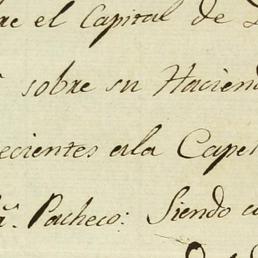 re el Capital de
sobre su Haciend
ecientes ala Capel
ã. Pacheco: Siendo c